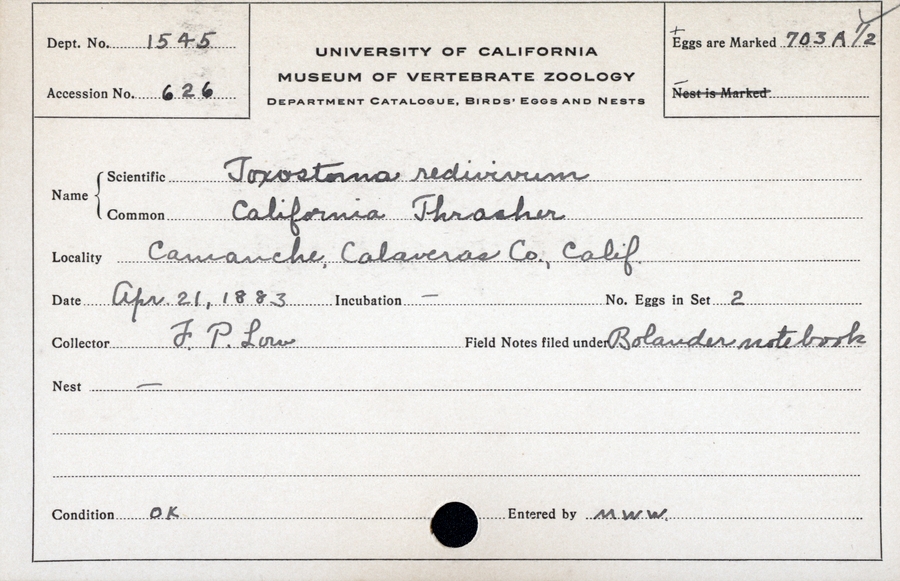 Dept. No. 1545
Accession No. 626
UNIVERSITY OF CALIFORNIA
MUSEUM OF VERTEBRATE ZOOLOGY
DEPARTMENT CATALOGUE, BIRDS' EGGS AND NESTS
Eggs are Marked 703A 1/2
Nest is Marked
Name { Scientific Toxostoma redivivum
Common California Thrasher
Locality Camanche, Calaveras Co., Calif.
Date Apr. 21, 1883 Incubation — No. Eggs in Set 2
Collector F. P. Low Field Notes filed under Bolander notebook
Nest —
Condition OK Entered by MWW.